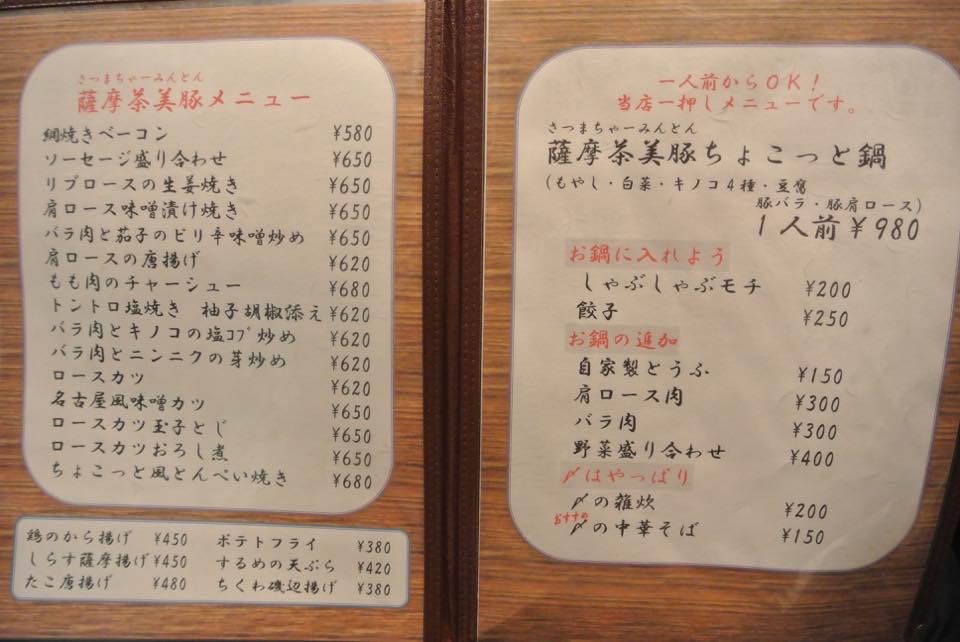 さつまちゃーみんとん
薩摩茶美豚メニュー
網焼きベーコン ¥580
ソーセージ盛り合わせ ¥650
リブロースの生姜焼き ¥650
肩ロース味噌漬け焼き ¥650
バラ肉と茄子のピリ辛味噌炒め ¥650
肩ロースの唐揚げ ¥620
もも肉のチャーシュー ¥680
トントロ塩焼き 柚子胡椒添え ¥620
バラ肉とキノコの塩コブ炒め ¥620
バラ肉とニンニクの芽炒め ¥620
ロースカツ ¥620
名古屋風味噌カツ ¥650
ロースカツ玉子とじ ¥650
ロースカツおろし煮 ¥650
ちょこっと風とんぺい焼き ¥680
鶏のから揚げ ¥450 ポテトフライ ¥380
しらす薩摩揚げ ¥450 するめの天ぷら ¥420
たこ唐揚げ ¥480 ちくわ磯辺揚げ ¥380
一人前からOK!
当店一押しメニューです。
さつまちゃーみんとん
薩摩茶美豚ちょこっと鍋
(もやし・白菜・キノコ4種・豆腐
豚バラ・豚肩ロース)
1人前¥980
お鍋に入れよう
しゃぶしゃぶモチ ¥200
餃子 ¥250
お鍋の追加
自家製とうふ ¥150
肩ロース肉 ¥300
バラ肉 ¥300
野菜盛り合わせ ¥400
〆はやっぱり
〆の雑炊 ¥200
おすすめ
〆の中華そば ¥150